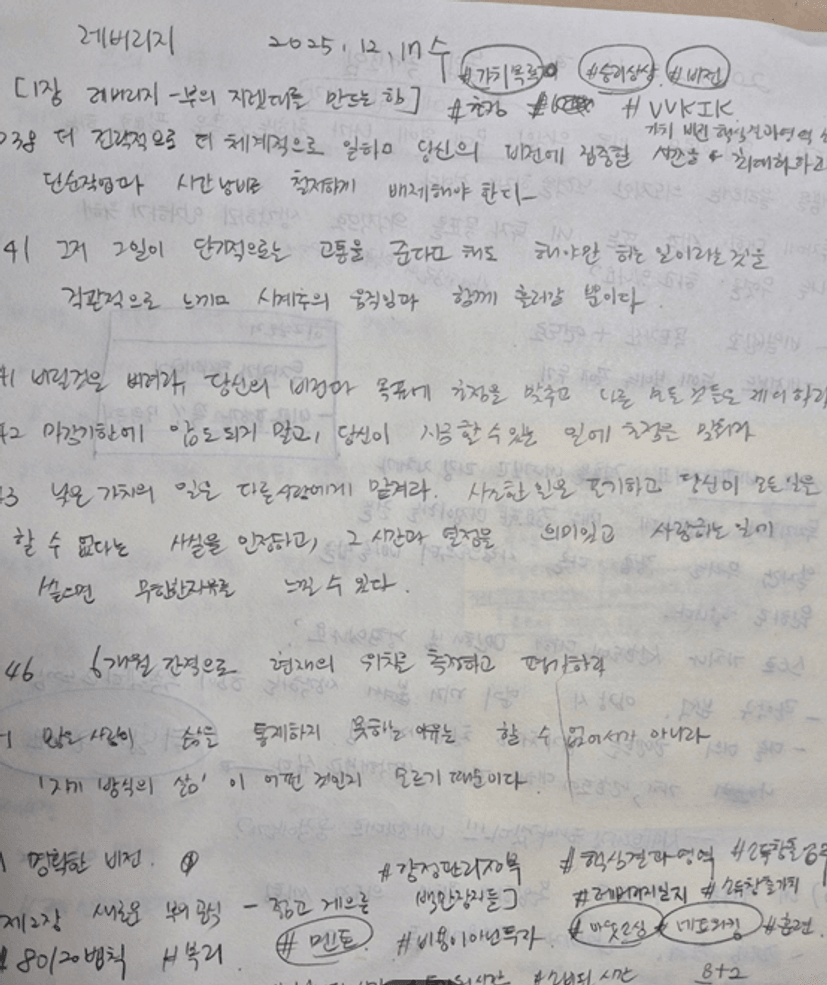 레버리지 2025. 12. 17 수 #가치목록 #승리상상 #비전
[1장 레버리지 -부의 지렛대를 만드는 힘] #초점 #VVKIK
가치 비전 핵심결과영역
38 더 전략적으로 더 체계적으로 일하며 당신의 비전에 집중할 시간을 최대화하고
단순작업과 시간낭비는 철저하게 배제해야 한다-
41 그저 그일이 단기적으로는 고통을 준다고 해도 해야만 하는 일이라는 것을
직관적으로 느끼며 시계추의 움직임과 함께 흘러갈 뿐이다.
41 버릴것은 버려라, 당신의 비전과 목표에 초점을 맞추고 다른 모든 것들은 제외하라
42 마감기한에 압도되지 말고, 당신이 지금 할 수 있는 일에 초점을 맞춰라
43 낮은 가치의 일은 다른사람에게 맡겨라. 사소한 일은 포기하고 당신이 모든 일을
할 수 없다는 사실을 인정하고, 그 시간과 열정을 의미있고 사랑하는 일에
쓰면 무한한 자유를 느낄 수 있다.
46 6개월 간격으로 현재의 위치를 측정하고 평가하라
많은 사람이 삶을 통제하지 못하는 이유는 할 수 없어서가 아니라
'자기 방식의 삶' 이 어떤 것인지 모르기 때문이다.
명확한 비전. #감정관리 #핵심결과영역 #소득창출업무
제2장 새로운 부의 공식 - 젊고 게으른 백만장자들] #레버리지일지 #소득창출가치
#80/20법칙 #복리 #멘토. #비용이아닌투자. #마스터마인드 #네트워킹 #훈련
8+2